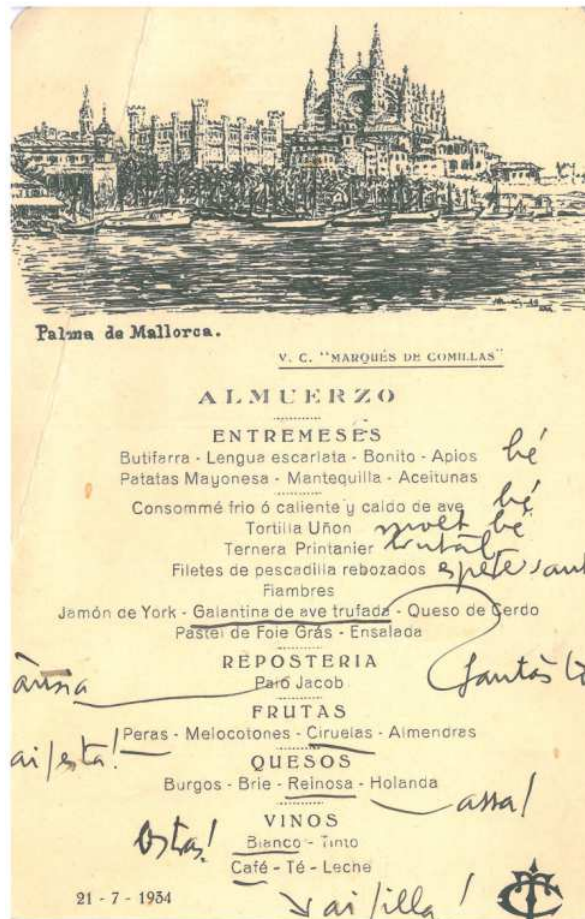 Palma de Mallorca.
V. C. "MARQUÉS DE COMILLAS"
ALMUERZO
ENTREMESES
Butifarra - Lengua escarlata - Bonito - Apios bé
Patatas Mayonesa - Mantequilla - Aceitunas
Consommé frio ó caliente y caldo de ave bé
Tortilla Uñon molt bé
Ternera Printanier brutal
Filetes de pescadilla rebozados
Fiambres
Jamón de York - Galantina de ave trufada - Queso de Cerdo
Pastel de Foie Grás - Ensalada
REPOSTERIA
Paró Jacob
FRUTAS
Peras - Melocotones - Ciruelas - Almendras
QUESOS
Burgos - Brie - Reinosa - Holanda
VINOS
Ostras!
Blanco - Tinto
Café - Té - Leche
21 - 7 - 1934